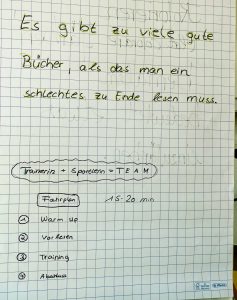 Es gibt zu viele gute
Bücher, als das man ein
schlechtes zu Ende lesen muss.
Trainerin + Sportlern = TEAM
Fahrplan 15-20 min
① Warm up
② Vorlesen
③ Training
④ Abschluss